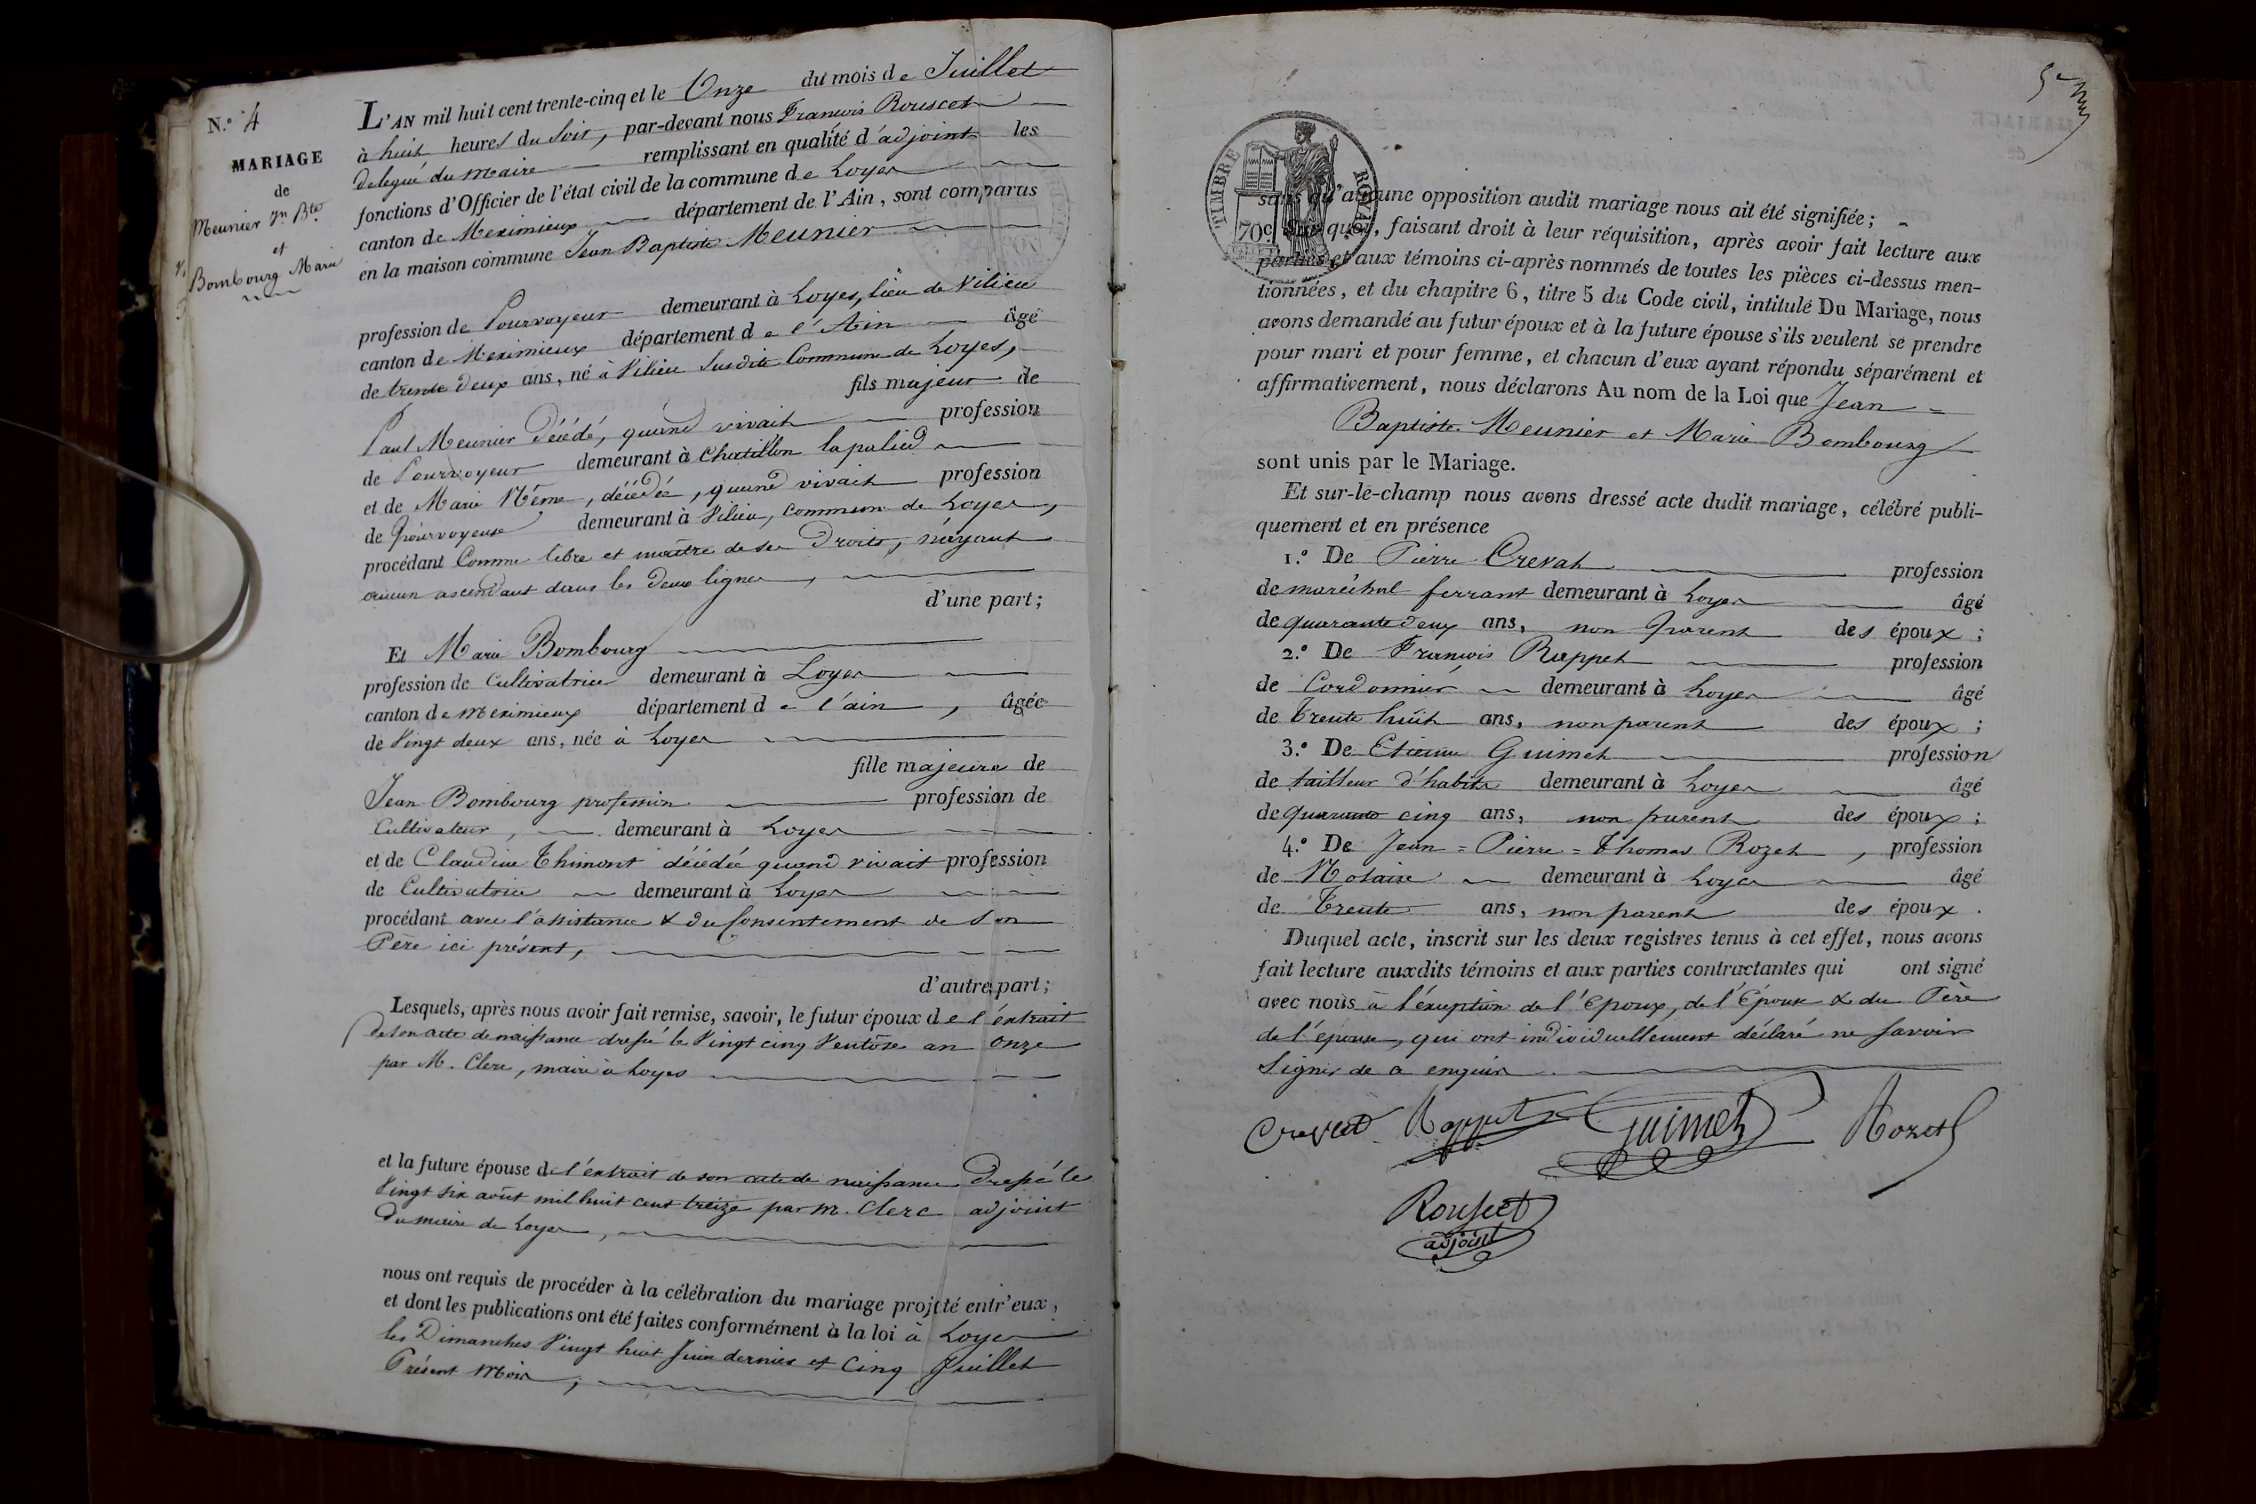 N.º 4
MARIAGE
de
Meunier Jn Bte
et
Bombourg Marie
L'AN mil huit cent trente-cinq et le Onze du mois de Juillet
à huit heures du Soir, par-devant nous François Rouscet
délégué du maire remplissant en qualité d'adjoint les
fonctions d'Officier de l'état civil de la commune de Loyes
canton de Meximieux département de l'Ain, sont comparus
en la maison commune Jean Baptiste Meunier
profession de Pourvoyeur demeurant à Loyes, lieu de Vilieu
canton de Meximieux département de l'Ain âgé
de trente deux ans, né à Vilieu Susdite Commune de Loyes,
fils majeur de
Paul Meunier Décédé, quand vivait profession
de Pourvoyeur demeurant à Chatillon la palud
et de Marie Même, décédée, quand vivait profession
de Pourvoyeuse demeurant à Vilieu, commune de Loyes,
procédant Comme libre et maître de ses Droits, n'ayant
aucun ascendant dans les deux lignes,
d'une part;
Et Marie Bombourg
profession de Cultivatrice demeurant à Loyes
canton de Meximieux département de l'ain, âgée
de Vingt deux ans, née à Loyes
fille majeure de
Jean Bombourg profession profession de
Cultivateur, demeurant à Loyes
et de Claudine Thimont décédée quand vivait profession
de Cultivatrice demeurant à Loyes
procédant avec l'assistance & du Consentement de Son
Père ici présent,
d'autre part;
Lesquels, après nous avoir fait remise, savoir, le futur époux de l'éxtrait
de son acte de naissance dressé le Vingt cinq Ventôse an Onze
par M. Clerc, maire à Loyes
et la future épouse de l'éxtrait de son acte de naissance Dressé le
Vingt six août mil huit cent treize par M. Clerc adjoint
du maire de Loyes,
nous ont requis de procéder à la célébration du mariage projeté entr'eux,
et dont les publications ont été faites conformément à la loi à Loyes
les Dimanches Vingt huit Juin dernier et Cinq Juillet
Présent Mois,
TIMBRE ROYAL
70c.
sans qu'aucune opposition audit mariage nous ait été signifiée;
Sur quoi, faisant droit à leur réquisition, après avoir fait lecture aux
parties et aux témoins ci-après nommés de toutes les pièces ci-dessus men-
tionnées, et du chapitre 6, titre 5 du Code civil, intitulé Du Mariage, nous
avons demandé au futur époux et à la future épouse s'ils veulent se prendre
pour mari et pour femme, et chacun d'eux ayant répondu séparément et
affirmativement, nous déclarons Au nom de la Loi que Jean
Baptiste Meunier et Marie Bombourg
sont unis par le Mariage.
Et sur-le-champ nous avons dressé acte dudit mariage, célébré publi-
quement et en présence
1.º De Pierre Crevat profession
de maréchal ferrant demeurant à Loyes âgé
de quarante deux ans, non parent des époux;
2.º De François Rappet profession
de Cordonnier demeurant à Loyes âgé
de Trente huit ans, non parent des époux;
3.º De Etienne Guimet profession
de tailleur d'habits demeurant à Loyes âgé
de quarante cinq ans, non parent des époux;
4.º De Jean=Pierre=Thomas Rozet, profession
de Notaire demeurant à Loyes âgé
de Trente ans, non parent des époux.
Duquel acte, inscrit sur les deux registres tenus à cet effet, nous avons
fait lecture auxdits témoins et aux parties contractantes qui ont signé
avec nous à l'éxception de l'Epoux, de l'Epouse & du Père
de l'épouse, qui ont individuellement déclaré ne Savoir
Signer de ce enquis.
Crevat Rappet Guimet Rozet
Rousset
adjoint